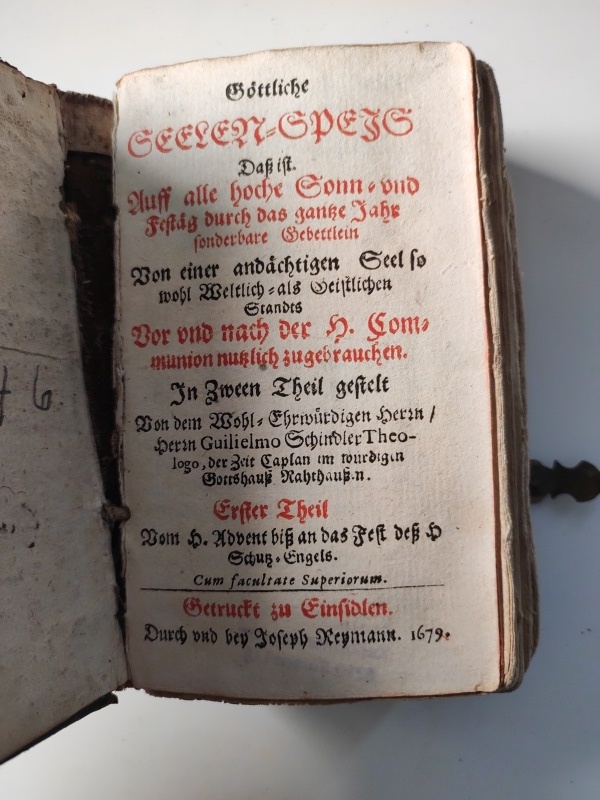 Göttliche
SEELEN-SPEJS
Daß ist.
Auff alle hoche Sonn- vnd
Festäg durch das gantze Jahr
sonderbare Gebettlein
Von einer andächtigen Seel so
wohl Weltlich-als Geistlichen
Standts
Vor vnd nach der H. Com-
munion nutzlich zugebrauchen.
In Zween Theil gestelt
Von dem Wohl-Ehrwürdigen Herrn /
Herrn Guilielmo Schindler Theo-
logo, der Zeit Caplan im würdigen
Gottshauß Rahthauß.n.
Erster Theil
Vom H. Advent biß an das Fest deß H
Schutz-Engels.
Cum facultate Superiorum.
Getruckt zu Einsidlen.
Durch vnd bey Joseph Reymann. 1679.
46.